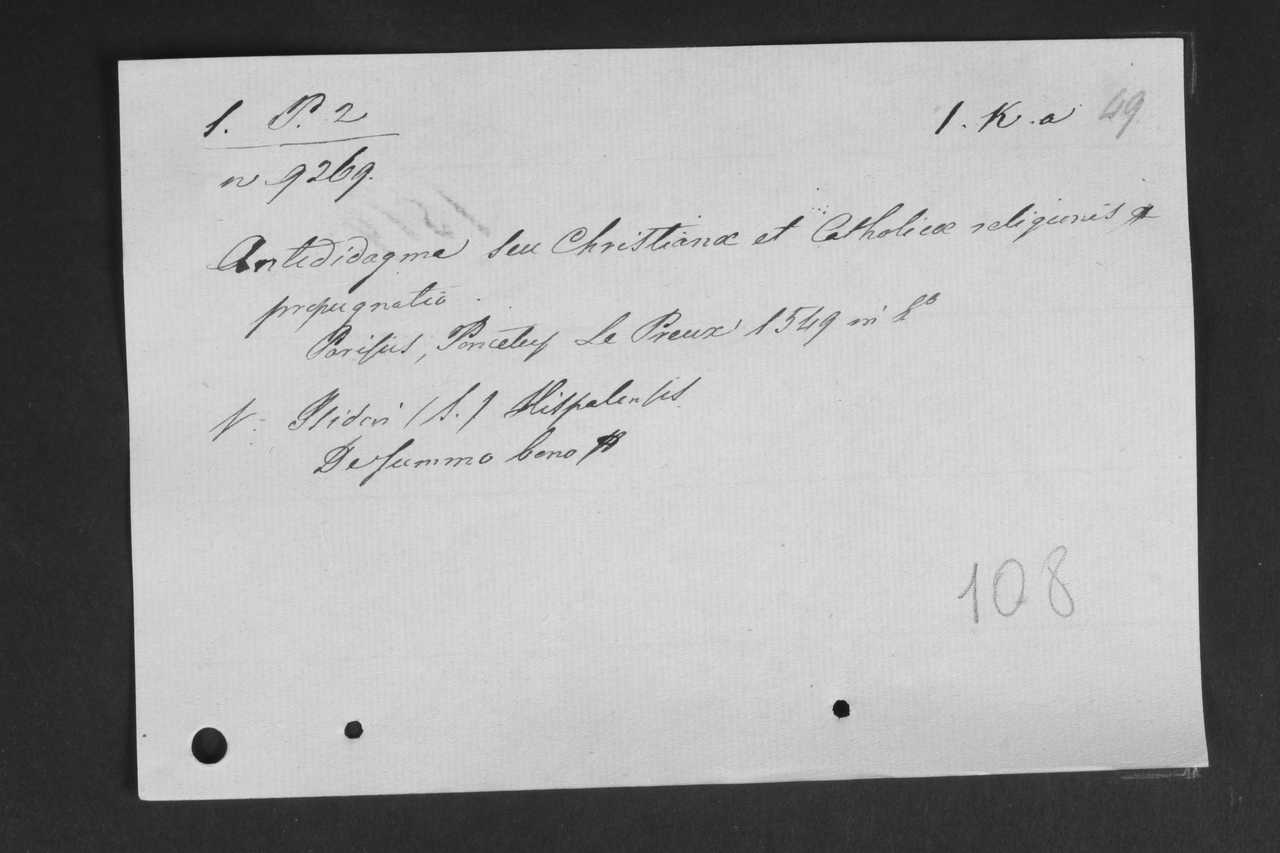 1. P. 2
1. K. a 49
n 9269.
Antedidagma seu Christianæ et Catholicæ religionis
propugnatio.
Parisiis, Poncetus Le Preux 1549 in 8º
V. Isidori (S.) Hispalensis
De summo bono
108